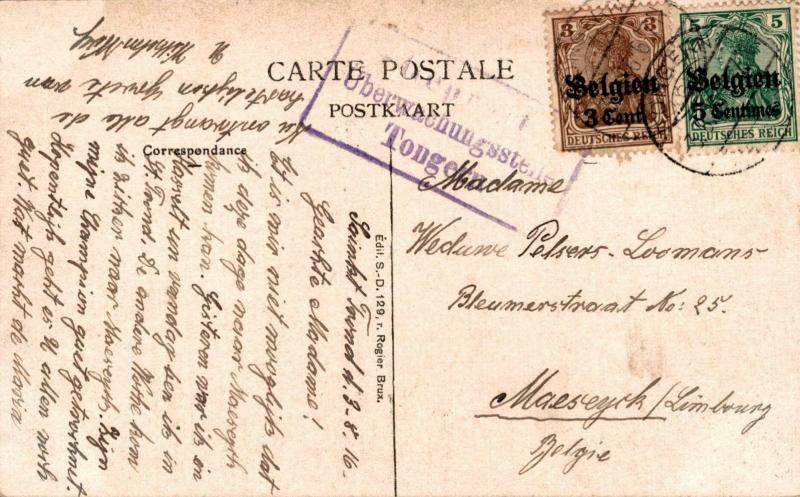 CARTE POSTALE
POSTKAART
Correspondance
3
Belgien
3 Cent.
DEUTSCHES REICH
5
5
Belgien
5 Centimes
DEUTSCHES REICH
Überwachungsstelle
Tongern
Édit. S.-D. 129, r. Rogier. Brux.
Madame
Weduwe Pelsers-Loomans
Bleumerstraat No: 25.
Maeseyck/Limbourg
Belgie
Sainkt Trond d. 3-8. 16-
Geachte Madame!
Et is mir niet muoglijk dat
ik deze dage naar Maeseyk
komen kan. Gisteren war ik in
Hasselt un vandag ben ik in
St. Trond. De andere Woche kom
ik ether naar Maeseyk. Zijn
mijne Champion guet getrocknet.
Hogentlijk geht es U allen noch
guet. Wat macht de Maria
Nu ontvangt alle de
hartelijken groete van
U Wilhelm